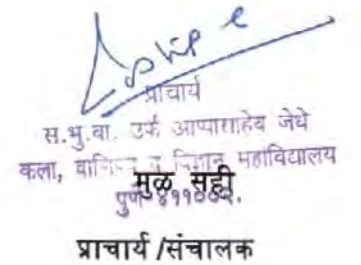 प्राचार्य
स.भु.बा. उर्फ आप्पासाहेब जेधे
कला, वाणिज्य व विज्ञान महाविद्यालय
मुळ सही
पुणे
प्राचार्य /संचालक